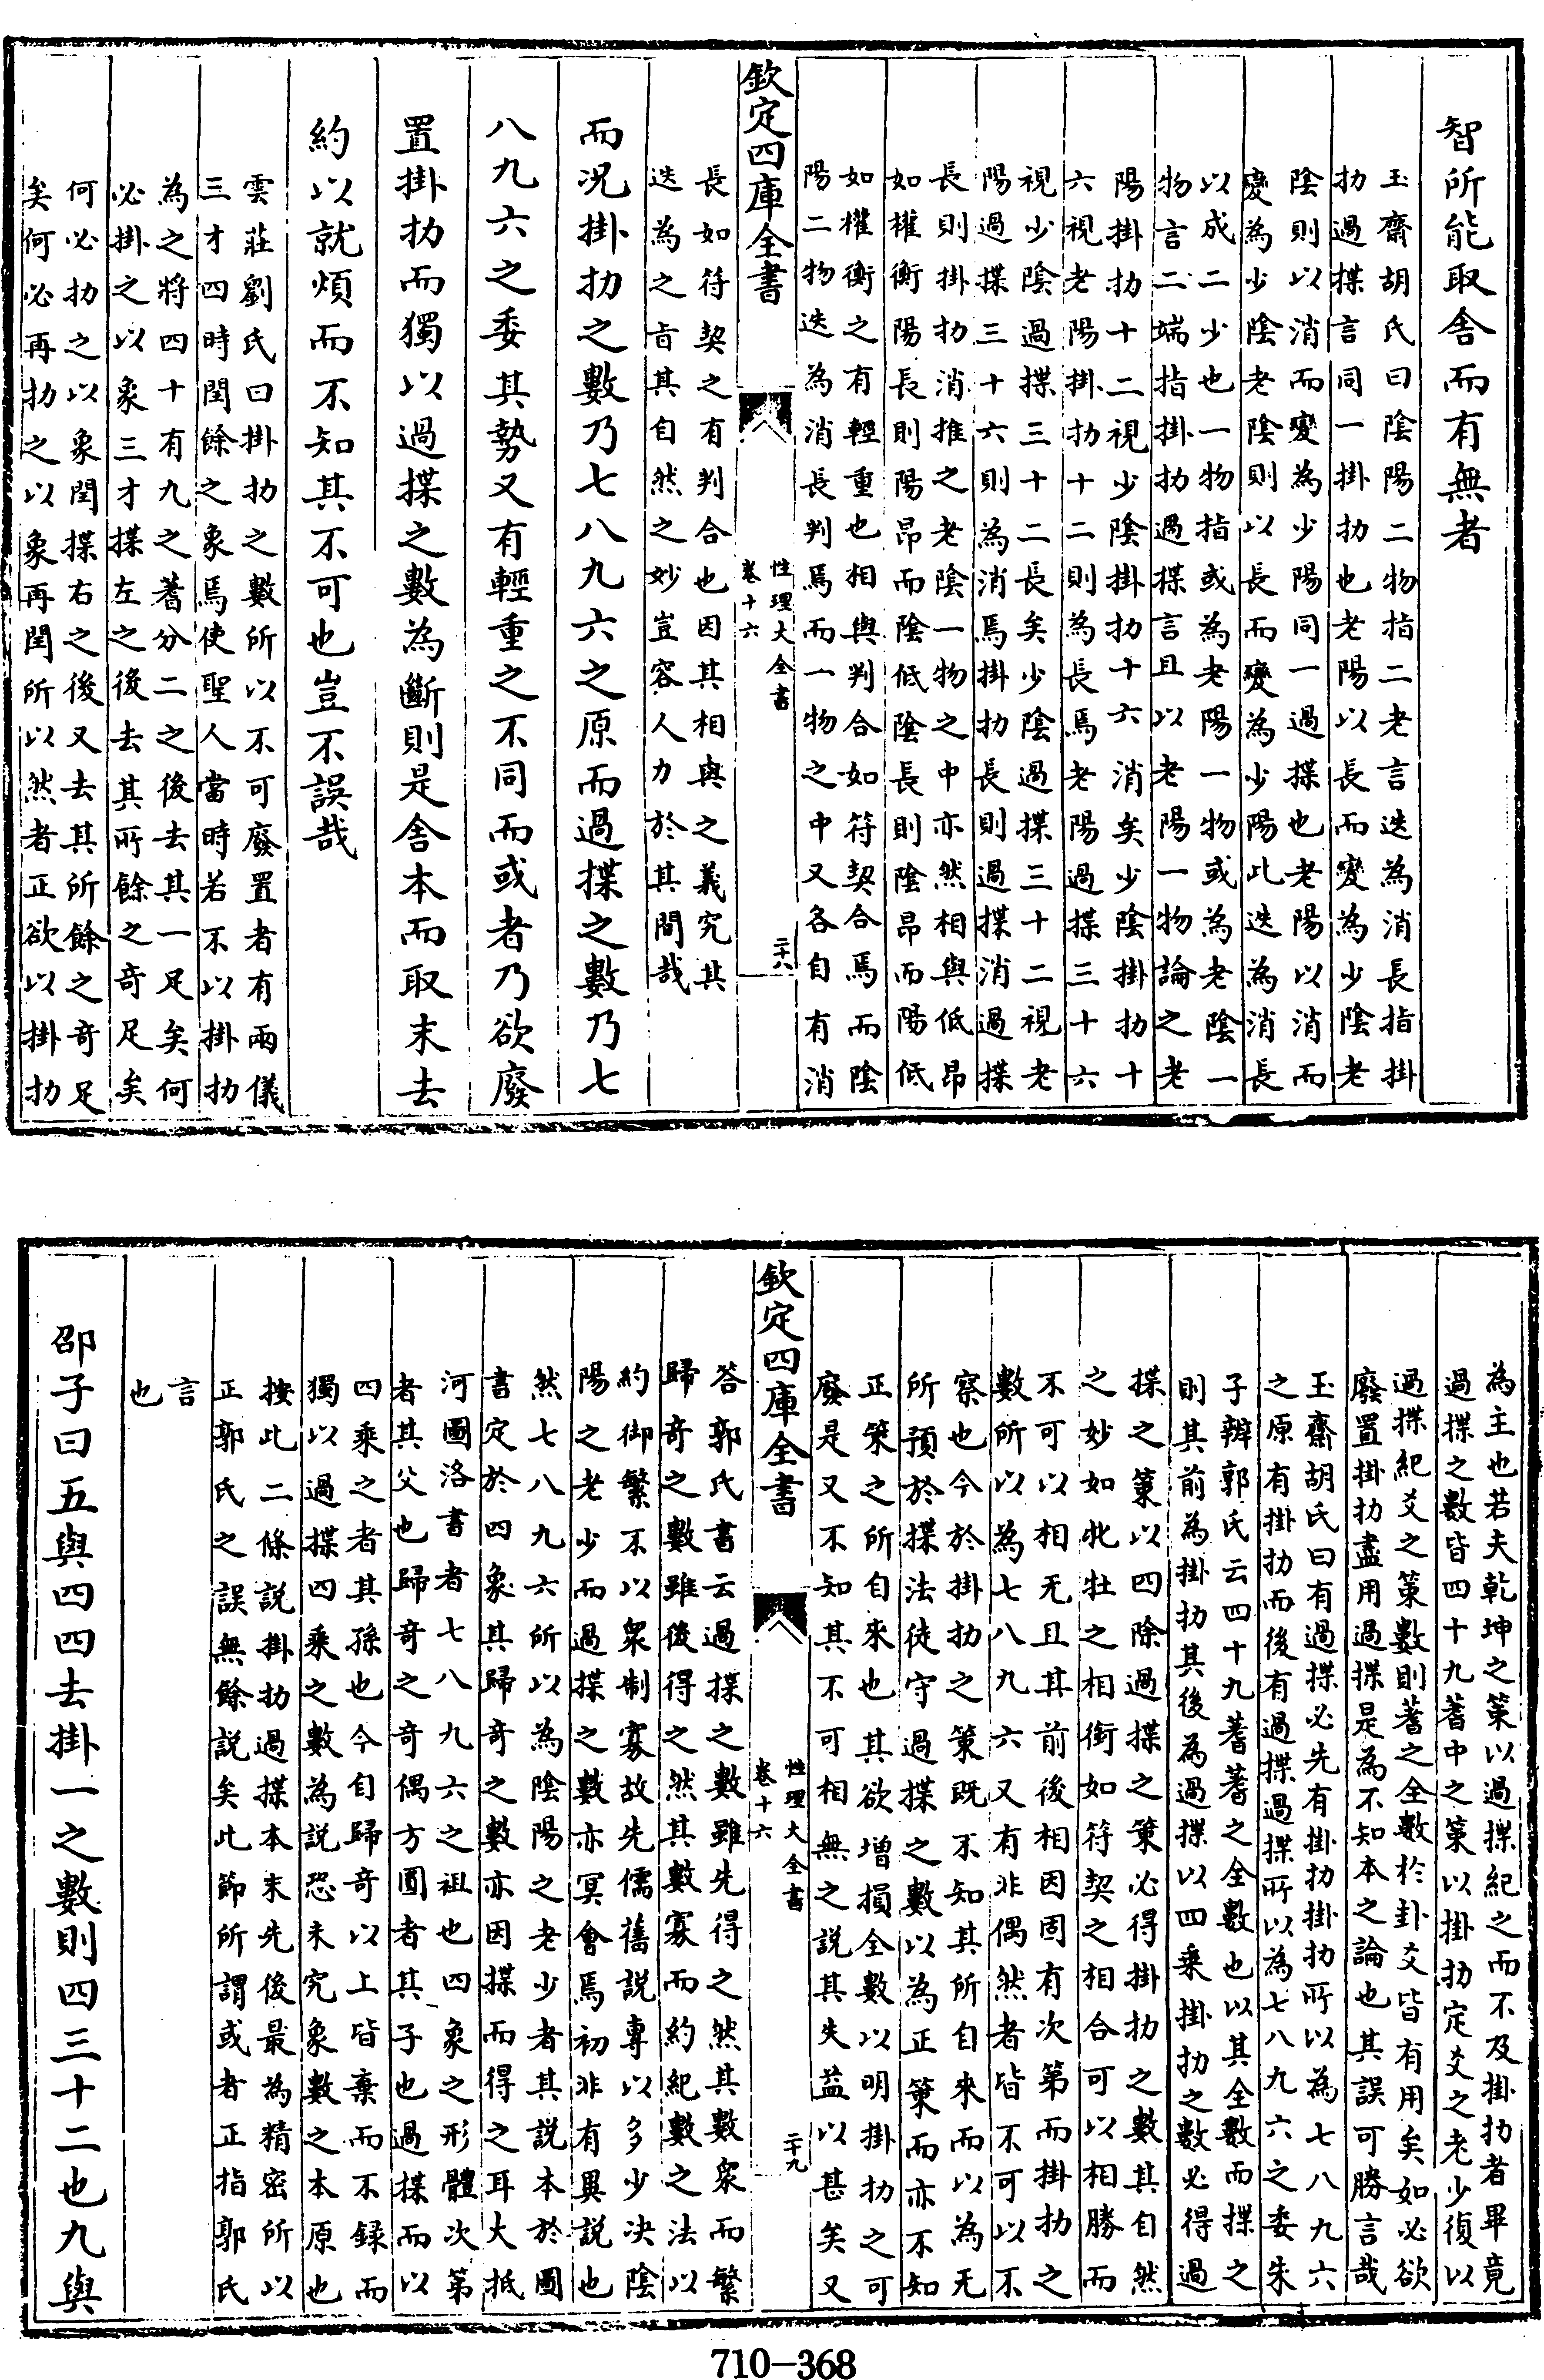 智所能取舎而有無者
玉齋胡氏曰陰陽二物指二老言迭為消長指掛
扐過揲言同一掛扐也老陽以長而變為少陰老
陰則以消而變為少陽同一過揲也老陽以消而
變為少陰老陰則以長而變為少陽此迭為消長
以成二少也一物指或為老陽一物或為老陰一
物言二端指掛扐過揲言且以老陽一物論之老
陽掛扐十二視少陰掛扐十六消矣少陰掛扐十
六視老陽掛扐十二則為長焉老陽過揲三十六
視少陰過揲三十二長矣少陰過揲三十二視老
陽過揲三十六則為消焉掛扐長則過揲消過揲
長則掛扐消推之老陰一物之中亦然相與低昂
如權衡陽長則陽昂而陰低陰長則陰昂而陽低
如權衡之有輕重也相與判合如符契合焉而陰
陽二物迭為消長判焉而一物之中又各自有消
欽定四庫全書
性理大全書
卷十六
二十八
長如符契之有判合也因其相與之義究其
迭為之旨其自然之妙豈容人力於其間哉
而况掛扐之數乃七八九六之原而過揲之數乃七
八九六之委其勢又有輕重之不同而或者乃欲廢
置掛扐而獨以過揲之數為斷則是舎本而取末去
約以就煩而不知其不可也豈不誤哉
雲莊劉氏曰掛扐之數所以不可廢置者有兩儀
三才四時閏餘之象焉使聖人當時若不以掛扐
為之將四十有九之蓍分二之後去其一足矣何
必掛之以象三才揲左之後去其所餘之奇足矣
何必扐之以象閏揲右之後又去其所餘之奇足
矣何必再扐之以象再閏所以然者正欲以掛扐
為主也若夫乾坤之策以過揲紀之而不及掛扐者畢竟
過揲之數皆四十九蓍中之策以掛扐定爻之老少復以
過揲紀爻之策數則蓍之全數於卦爻皆有用矣如必欲
廢置掛扐盡用過揲是為不知本之論也其誤可勝言哉
玉齋胡氏曰有過揲必先有掛扐掛扐所以為七八九六
之原有掛扐而後有過揲過揲所以為七八九六之委朱
子辨郭氏云四十九蓍蓍之全數也以其全數而揲之
則其前為掛扐其後為過揲以四乘掛扐之數必得過
揲之策以四除過揲之策必得掛扐之數其自然
之妙如牝牡之相銜如符契之相合可以相勝而
不可以相无且其前後相因固有次第而掛扐之
數所以為七八九六又有非偶然者皆不可以不
察也今於掛扐之策既不知其所自來而以為无
所預於揲法徒守過揲之數以為正策而亦不知
正策之所自來也其欲増損全數以明掛扐之可
廢是又不知其不可相無之説其失益以甚矣又
欽定四庫全書
性理大全書
卷十六
二十九
答郭氏書云過揲之數雖先得之然其數衆而繁
歸奇之數雖後得之然其數寡而約紀數之法以
約御繁不以衆制寡故先儒舊説專以多少決陰
陽之老少而過揲之數亦冥會焉初非有異説也
然七八九六所以為陰陽之老少者其説本於圖
書定於四象其歸奇之數亦因揲而得之耳大抵
河圖洛書者七八九六之祖也四象之形體次第
者其父也歸奇之奇偶方圓者其子也過揲而以
四乘之者其孫也今自歸奇以上皆棄而不録而
獨以過揲四乘之數為説恐未究象數之本原也
按此二條説掛扐過揲本末先後最為精密所以
正郭氏之誤無餘説矣此節所謂或者正指郭氏
言
也
邵子曰五與四四去掛一之數則四三十二也九與
710-368